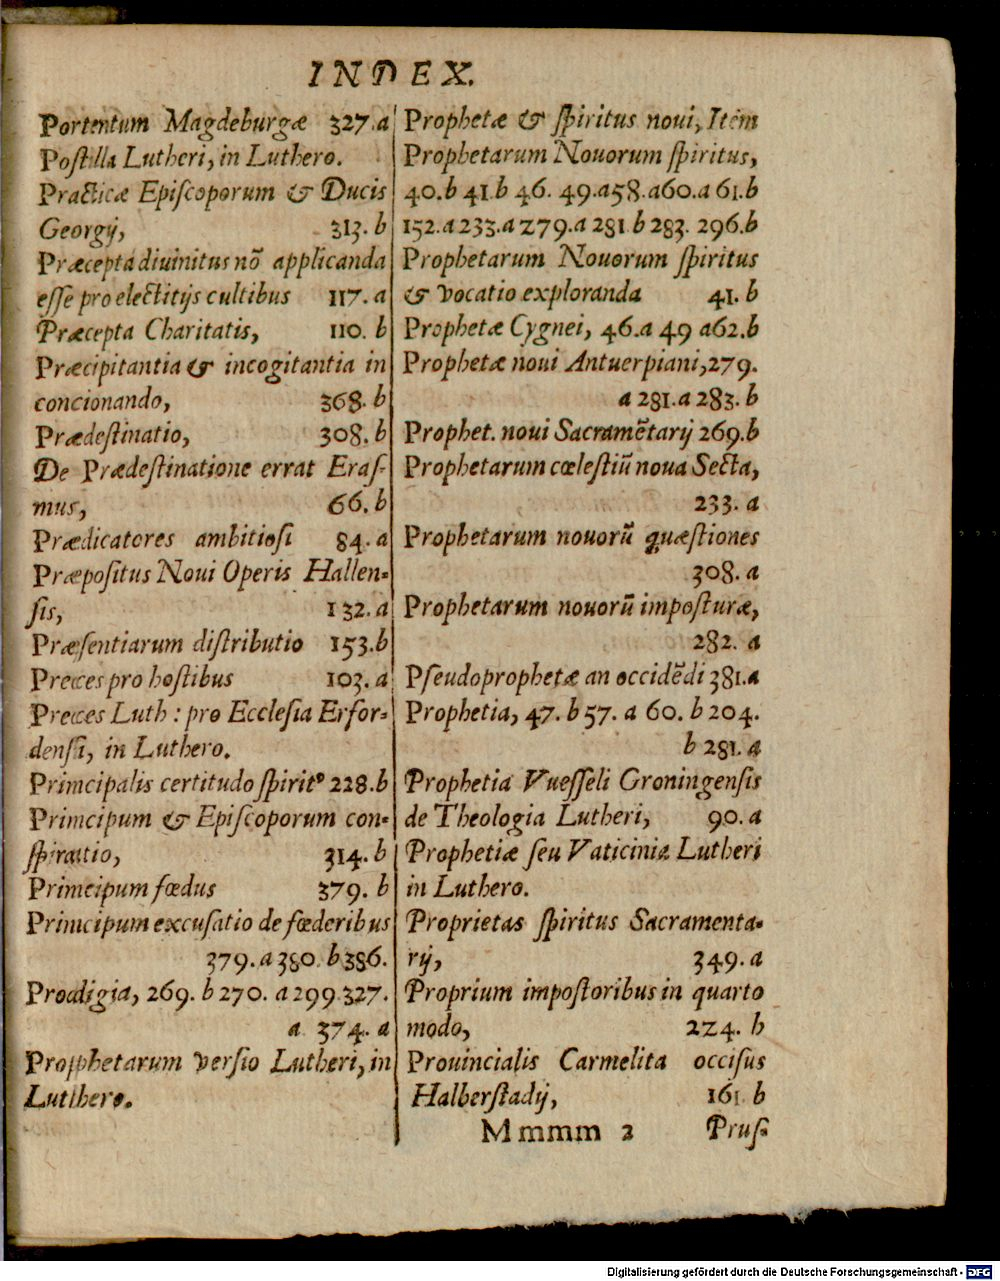 INDEX.
Portentum Magdeburgæ 327.a
Poſtilla Lutheri, in Luthero.
Practicæ Epiſcoporum & Ducis
Georgij, 313. b
Præcepta diuinitus nō applicanda
eſſe pro electitijs cultibus 117. a
Præcepta Charitatis, 110. b
Præcipitantia & incogitantia in
concionando, 368. b
Prædeſtinatio, 308. b
De Prædeſtinatione errat Eraſ-
mus, 66. b
Prædicatores ambitioſi 84. a
Præpoſitus Noui Operis Hallen-
ſis, 132. a
Præſentiarum diſtributio 153.b
Preces pro hoſtibus 103. a
Preces Luth: pro Eccleſia Erfor-
denſi, in Luthero.
Principalis certitudo ſpiritꝰ 228.b
Principum & Epiſcoporum con-
ſpiratio, 314. b
Principum fœdus 379. b
Principum excuſatio de fœderibus
379. a 380. b 386.
Prodigia, 269. b 270. a 299.327.
a 374. a
Prophetarum verſio Lutheri, in
Luthero.
Prophetæ & ſpiritus noui, Item
Prophetarum Nouorum ſpiritus,
40.b 41.b 46. 49.a 58.a 60.a 61.b
152.a 233.a 279.a 281 b 283. 296.b
Prophetarum Nouorum ſpiritus
& vocatio exploranda 41. b
Prophetæ Cygnei, 46.a 49 a 62.b
Prophetæ noui Antuerpiani, 279.
a 281.a 283. b
Prophet. noui Sacramētarij 269.b
Prophetarum cœleſtiū noua Secta,
233. a
Prophetarum nouorū quæſtiones
308. a
Prophetarum nouorū impoſturæ,
282. a
Pſeudoprophetæ an occidēdi 381.a
Prophetia, 47. b 57. a 60. b 204.
b 281. a
Prophetia Vueſſeli Groningenſis
de Theologia Lutheri, 90. a
Prophetiæ ſeu Vaticinia Lutheri
in Luthero.
Proprietas ſpiritus Sacramenta-
rij, 349. a
Proprium impoſtoribus in quarto
modo, 224. b
Prouincialis Carmelita occiſus
Halberſtadij, 161 b
Mmmm 2 Pruſ-
Digitalisierung gefördert durch die Deutsche Forschungsgemeinschaft - DFG